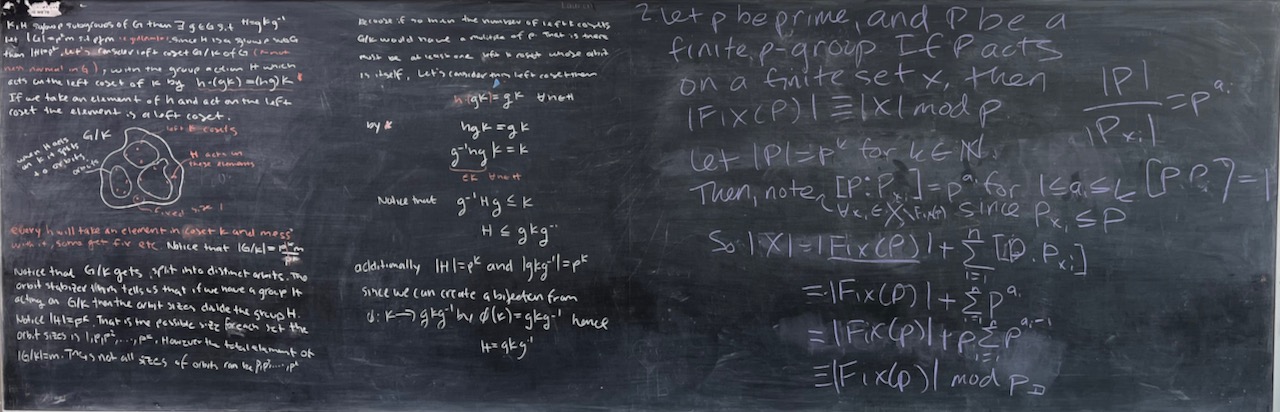 K, H sylow subgroups of G then ∃ g∈G s.t H=gkg⁻¹
let |G|=pᵏm s.t p∤m
than |H|=pᵏ. Let's consider left coset G/K of G (K not
non normal in G), with the group action H which
acts on the left coset of K by h·(gK)=(hg)K *
If we take an element of h and act on the left
coset the element is a left coset.
when H acts
on K it splits
to orbits.
G/K
left K cosets
orbits
H acts on
these elements
fixed size 1
every h will take an element in coset K and mess
with it, some get fix etc Notice that |G/K|=pᵏm/pᵏ
Notice that G/K gets split into distinct orbits. The
orbit stabilizer thm tells us that if we have a group H
acting on G/K then the orbit sizes divide the group H.
Notice |H|=pᵏ. That is the possible size for each set the
orbit sizes is 1,p,p²,...,pᵏ. However the total element of
|G/K|=m. Thus not all sizes of orbits can be p,p²,...,pᵏ
Because if so then the number of left K cosets
G/K would have a multiple of p. That is there
must be at least one left K coset whose orbit
is itself. Let's consider left coset then
h·(gK)=gK ∀h∈H
by *
hgK=gK
g⁻¹hgK=K
∈K ∀h∈H
Notice that g⁻¹Hg≤K
H≤gKg⁻¹
additionally |H|=pᵏ and |gKg⁻¹|=pᵏ
since we can create a bijection from
ϕ:K→gKg⁻¹ by ϕ(k)=gkg⁻¹ hence
H=gKg⁻¹
2. Let p be prime, and P be a
finite p-group If P acts
on a finite set x, then
|Fix(P)|≡|X| mod p.
|P|/|Pₓᵢ|=p^aᵢ
Let |P|=pᵏ for k∈ℕ.
Then, note, [P:Pₓᵢ]=p^aᵢ for 1≤aᵢ≤k [P:P]=1
∀xᵢ∈X\Fix(P) since Pₓᵢ≤P
So |X|=|Fix(P)|+∑ⁿᵢ₌₁[P:Pₓᵢ]
≡|Fix(P)|+∑ⁿᵢ₌₁p^aᵢ
≡|Fix(P)|+p∑ⁿᵢ₌₁p^(aᵢ-1)
≡|Fix(P)| mod p □